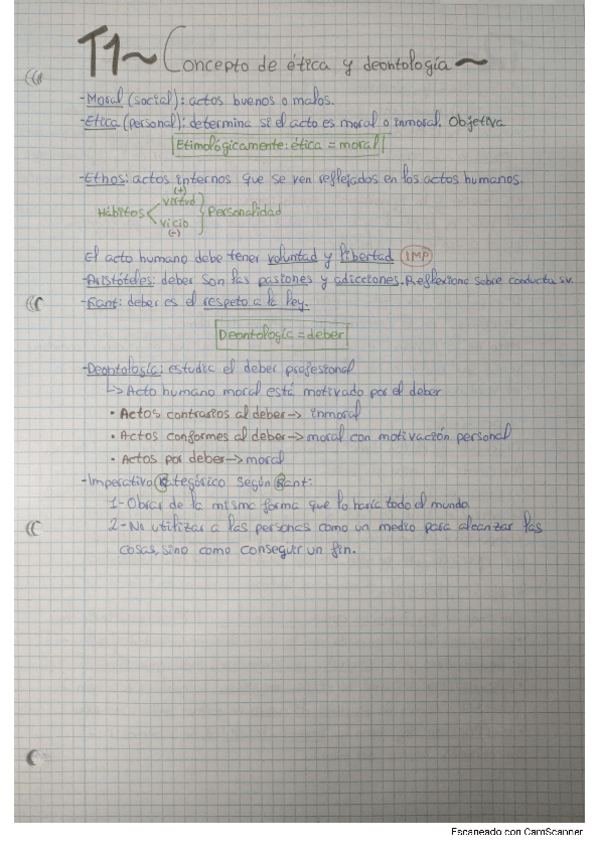 T1~ Concepto de ética y deontología ~
-Moral (social): actos buenos o malos.
-Ética (personal): determina si el acto es moral o inmoral. Objetiva
Etimológicamente: ética = moral
-Ethos: actos internos que se ven reflejados en los actos humanos.
(+)
virtud
Hábitos Personalidad
vicio
(-)
El acto humano debe tener voluntad y libertad IMP
-Aristóteles: deber son las pasiones y adicciones. Reflexione sobre conducta
-Kant: deber es el respeto a la ley.
Deontología = deber
-Deontología: estudia el deber profesional
↳ Acto humano moral está motivado por el deber
• Actos contrarios al deber → inmoral
• Actos conformes al deber → moral con motivación personal
• Actos por deber → moral
-Imperativo Kategórico según Kant:
1-Obrar de la misma forma que lo haría todo el mundo.
2-No utilizar a las personas como un medio para alcanzar las
cosas, sino como conseguir un fin.
Escaneado con CamScanner